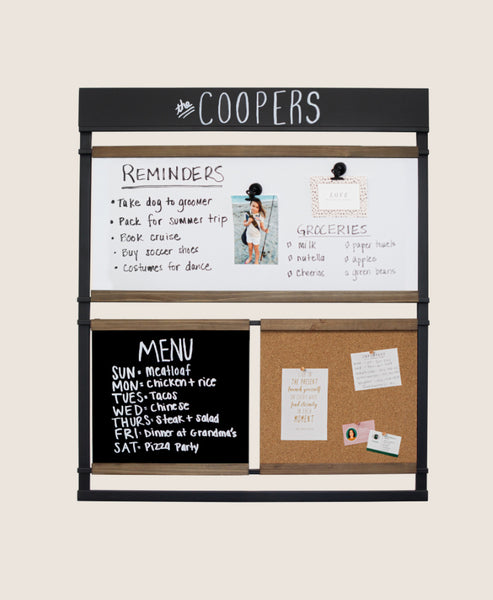 the COOPERS
REMINDERS
• Take dog to groomer
• Pack for summer trip
• Book cruise
• Buy soccer shoes
• Costumes for dance
LOVE
GROCERIES
milk
nutella
Cheerios
paper towels
apples
green beans
MENU
SUN: Meatloaf
MON: Chicken + rice
TUES: Tacos
WED: Chinese
THURS: Steak + salad
FRI: Dinner at Grandma's
SAT: Pizza Party
THE PRESENT
find eternity
IN EACH
MOMENT